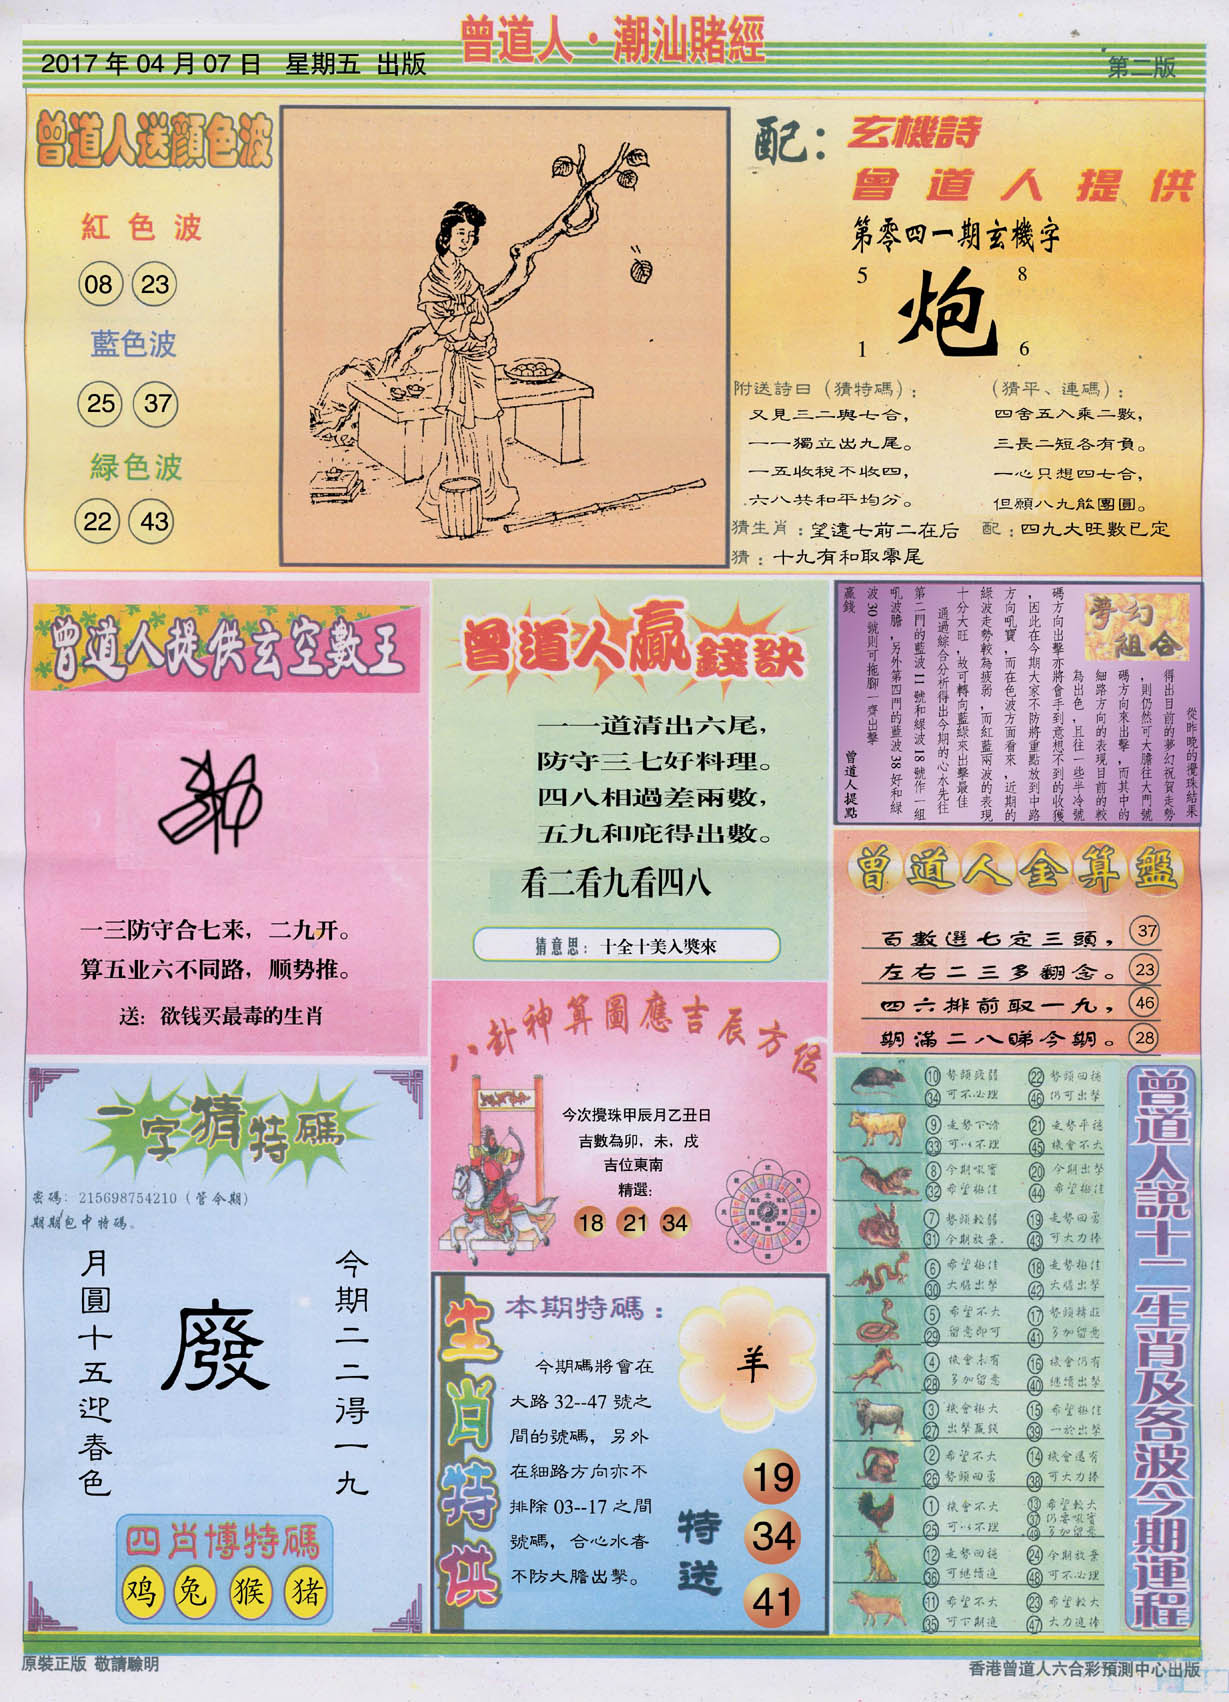 曾道人·潮汕賭經
2017 年 04 月 07 日 星期五 出版
第二版
曾道人送顏色波
紅色波
08 23
藍色波
25 37
緑色波
22 43
配：玄機詩
曾道人提供
第零四一期玄機字
5 8
炮
1 6
附送詩曰（猜特碼）：
又見三二與七合，
一一獨立出九尾。
一五收稅不收四，
六八共和平均分。
（猜平、連碼）：
四舍五入乘二數，
三長二短各有負。
一心只想四七合，
但願八九能團圓。
猜生肖：望遠七前二在后
配：四九大旺數已定
猜：十九有和取零尾
曾道人提供玄空數王
一三防守合七来，二九开。
算五业六不同路，顺势推。
送：欲钱买最毒的生肖
曾道人贏錢訣
一一道清出六尾，
防守三七好料理。
四八相過差兩數，
五九和庇得出數。
看二看九看四八
猜意思：十全十美入獎來
夢幻
組合
從昨晚的攪珠結果
得出目前的夢幻祝賀走勢
，則仍然可大膽往大門號
碼方向來出擊，而其中的
細路方向的表現目前的較
為出色，且往一些半冷號
碼方向出擊亦將會手到意想不到的收獲
，因此在今期大家不防將重點放到中路
方向吼寶，而在色波方面看來，近期的
綠波走勢較為疲弱，而紅藍兩波的表現
十分大旺，故可轉向藍綠來出擊最佳
通過綜合分析得出今期的心水先往
第二門的藍波11號和綠波18號作一組
吼波膽，另外第四門的藍波38好和綠
波30號則可拖腳一齊出擊
贏錢
曾道人提點
曾道人金算盤
百數選七定三頭， 37
左右二三多翻念。 23
四六排前取一九， 46
期滿二八睇今期。 28
一字猜特碼
密碼：215698754210（管今期）
期期包中特碼。
今期二二得一九
廢
月圓十五迎春色
四肖博特碼
鸡 兔 猴 猪
八卦神算圖應吉辰方位
今次攪珠甲辰月乙丑日
吉數為卯，未，戌
吉位東南
精選：
18 21 34
生肖特供
本期特碼：
今期碼將會在
大路 32--47 號之
間的號碼，另外
在細路方向亦不
排除 03--17 之間
號碼，合心水春
不防大膽出擊。
羊
特送
19
34
41
曾道人說十二生肖及各波今期運程
⑩ 勢頭疲弱 ㉒ 勢頭回穩
㉞ 可不必理 ㊻ 仍可出擊
⑨ 走勢下滑 ㉑ 走勢平穩
㉝ 可以不理 ㊺ 機會不大
⑧ 今期吼寶 ⑳ 今期出擊
㉜ 希望極佳 ㊹ 希望極佳
⑦ 勢頭較弱 ⑲ 走勢回勇
㉛ 今期放棄 ㊸ 可大力捧
⑥ 希望極佳 ⑱ 走勢極佳
㉚ 大膽出擊 ㊷ 大膽出擊
⑤ 希望不大 ⑰ 勢頭轉旺
㉙ 留意即可 ㊶ 多加留意
④ 機會未有 ⑯ 機會仍有
㉘ 多加留意 ㊵ 继續出擊
③ 機會極大 ⑮ 希望極佳
㉗ 出擊贏錢 ㊴ 一於出擊
② 希望不大 ⑭ 機會還有
㉖ 勢頭回勇 ㊳ 可大力捧
① 機會不大 ⑬ 希望較大
㊲ 仍要吼寶
㉕ 可以不理 ㊾ 多加留意
⑫ 走勢回穩 ㉔ 今期放棄
㊱ 可繼續追 ㊽ 可不必理
⑪ 希望不大 ㉓ 希望較大
㉟ 可下期追 ㊼ 大力追捧
原裝正版 敬請驗明
香港曾道人六合彩預測中心出版